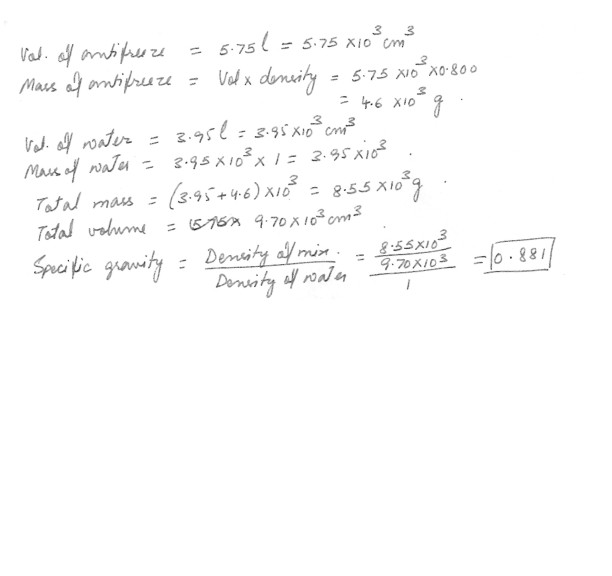 Vol. of antifreeze = 5.75 l = 5.75 × 10³ cm³
Mass of antifreeze = Vol × density = 5.75 × 10³ × 0.800
= 4.6 × 10³ g.
Vol. of water = 3.95 l = 3.95 × 10³ cm³.
Mass of water = 3.95 × 10³ × 1 = 3.95 × 10³.
Total mass = (3.95 + 4.6) × 10³ = 8.55 × 10³ g.
Total volume = 9.70 × 10³ cm³.
Specific gravity = Density of mix. / Density of water = 8.55×10³ / 9.70×10³ / 1 = 0.881